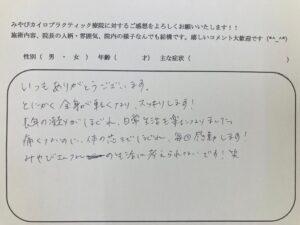 みやびカイロプラクティック療院に対するご感想をよろしくお願いいたします!!
施術内容、院長の人柄・雰囲気、院内の様子なんでも結構です。嬉しいコメント大歓迎です (*^_^*)
性別(男・女) 年齢( 才) 主な症状( )
いつもありがとうございます。
とにかく全身が軽くなり、スッキリします!
長年の凝りがほぐれ、日常生活も楽になりました。
痛くないのに、体の芯までほぐれ、毎回感動します!
みやびさんなしの生活は考えられないです! 笑